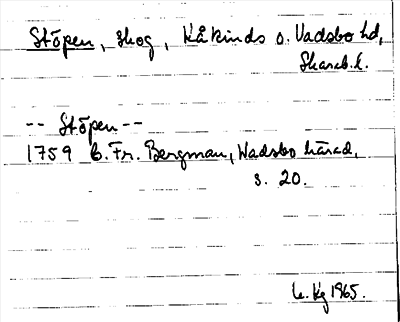 Stöpen, skog, Kåkinds o. Vadsbo hd,
Skarab.l.
-- Stöpen --
1759 B. Fr. Bergman, Wadsbo härad,
s. 20.
1965.